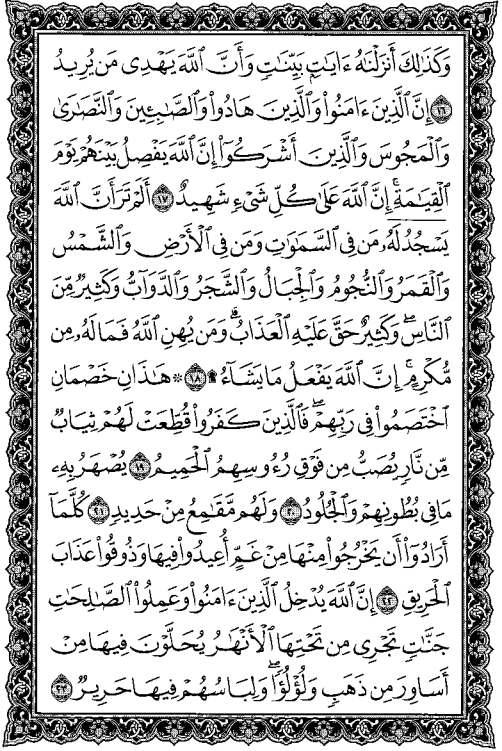 وَكَذَٰلِكَ أَنزَلْنَٰهُ ءَايَٰتٍۭ بَيِّنَٰتٍ وَأَنَّ ٱللَّهَ يَهْدِى مَن يُرِيدُ
۝١٦ إِنَّ ٱلَّذِينَ ءَامَنُوا۟ وَٱلَّذِينَ هَادُوا۟ وَٱلصَّٰبِـِٔينَ وَٱلنَّصَٰرَىٰ
وَٱلْمَجُوسَ وَٱلَّذِينَ أَشْرَكُوٓا۟ إِنَّ ٱللَّهَ يَفْصِلُ بَيْنَهُمْ يَوْمَ
ٱلْقِيَٰمَةِ ۚ إِنَّ ٱللَّهَ عَلَىٰ كُلِّ شَىْءٍ شَهِيدٌ ۝١٧ أَلَمْ تَرَ أَنَّ ٱللَّهَ
يَسْجُدُ لَهُۥ مَن فِى ٱلسَّمَٰوَٰتِ وَمَن فِى ٱلْأَرْضِ وَٱلشَّمْسُ
وَٱلْقَمَرُ وَٱلنُّجُومُ وَٱلْجِبَالُ وَٱلشَّجَرُ وَٱلدَّوَآبُّ وَكَثِيرٌ مِّنَ
ٱلنَّاسِ ۖ وَكَثِيرٌ حَقَّ عَلَيْهِ ٱلْعَذَابُ ۗ وَمَن يُهِنِ ٱللَّهُ فَمَا لَهُۥ مِن
مُّكْرِمٍ ۚ إِنَّ ٱللَّهَ يَفْعَلُ مَا يَشَآءُ ۩ ۝١٨ ۞ هَٰذَانِ خَصْمَانِ
ٱخْتَصَمُوا۟ فِى رَبِّهِمْ ۖ فَٱلَّذِينَ كَفَرُوا۟ قُطِّعَتْ لَهُمْ ثِيَابٌ
مِّن نَّارٍ يُصَبُّ مِن فَوْقِ رُءُوسِهِمُ ٱلْحَمِيمُ ۝١٩ يُصْهَرُ بِهِۦ
مَا فِى بُطُونِهِمْ وَٱلْجُلُودُ ۝٢٠ وَلَهُم مَّقَٰمِعُ مِنْ حَدِيدٍ ۝٢١ كُلَّمَآ
أَرَادُوٓا۟ أَن يَخْرُجُوا۟ مِنْهَا مِنْ غَمٍّ أُعِيدُوا۟ فِيهَا وَذُوقُوا۟ عَذَابَ
ٱلْحَرِيقِ ۝٢٢ إِنَّ ٱللَّهَ يُدْخِلُ ٱلَّذِينَ ءَامَنُوا۟ وَعَمِلُوا۟ ٱلصَّٰلِحَٰتِ
جَنَّٰتٍ تَجْرِى مِن تَحْتِهَا ٱلْأَنْهَٰرُ يُحَلَّوْنَ فِيهَا مِنْ
أَسَاوِرَ مِن ذَهَبٍ وَلُؤْلُؤًا ۖ وَلِبَاسُهُمْ فِيهَا حَرِيرٌ ۝٢٣